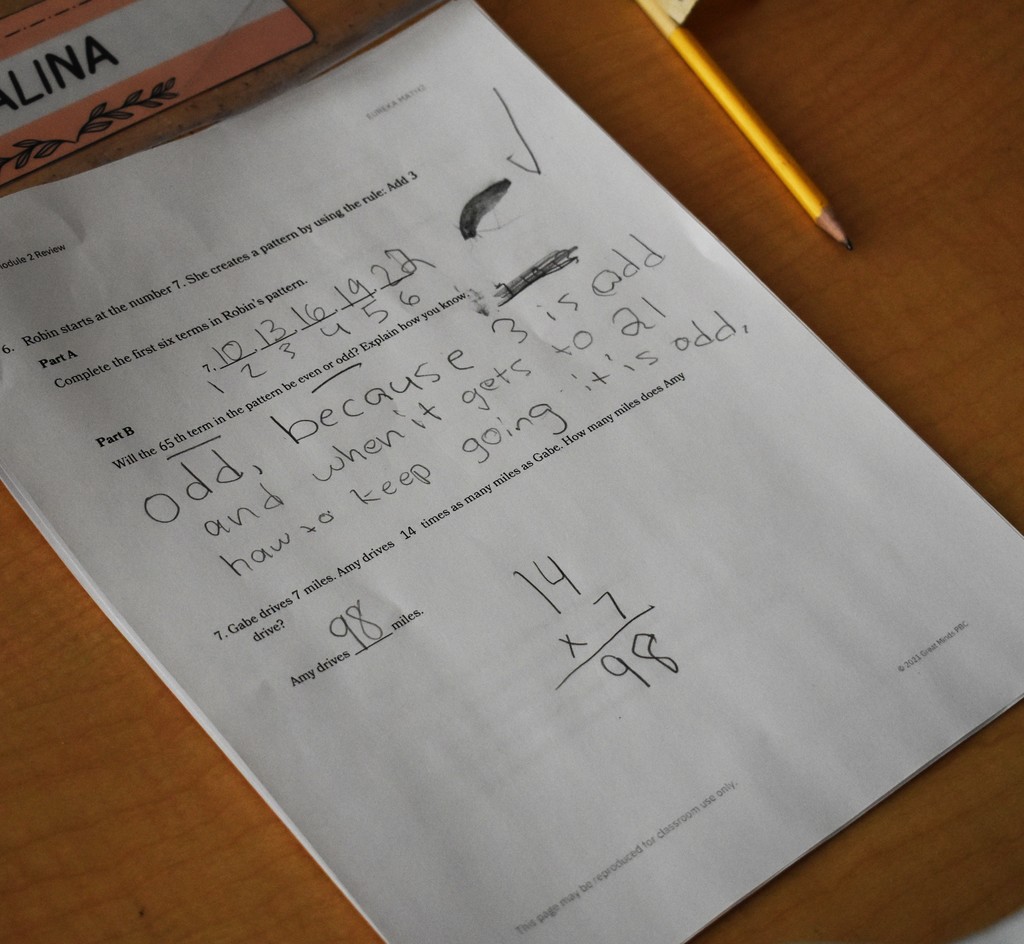 ALINA
EUREKA MATH2
odule 2 Review
6. Robin starts at the number 7. She creates a pattern by using the rule: Add 3
Part A
Complete the first six terms in Robin's pattern.
7, 10 13 16 19 22
1 2 3 4 5 6
Part B
Will the 65 th term in the pattern be even or odd? Explain how you know.
Odd, because 3 is odd
and when it gets to 21
haw to keep going it is odd.
7. Gabe drives 7 miles. Amy drives 14 times as many miles as Gabe. How many miles does Amy
drive?
Amy drives 98 miles.
14
x 7
98
© 2021 Great Minds PBC
This page may be reproduced for classroom use only.